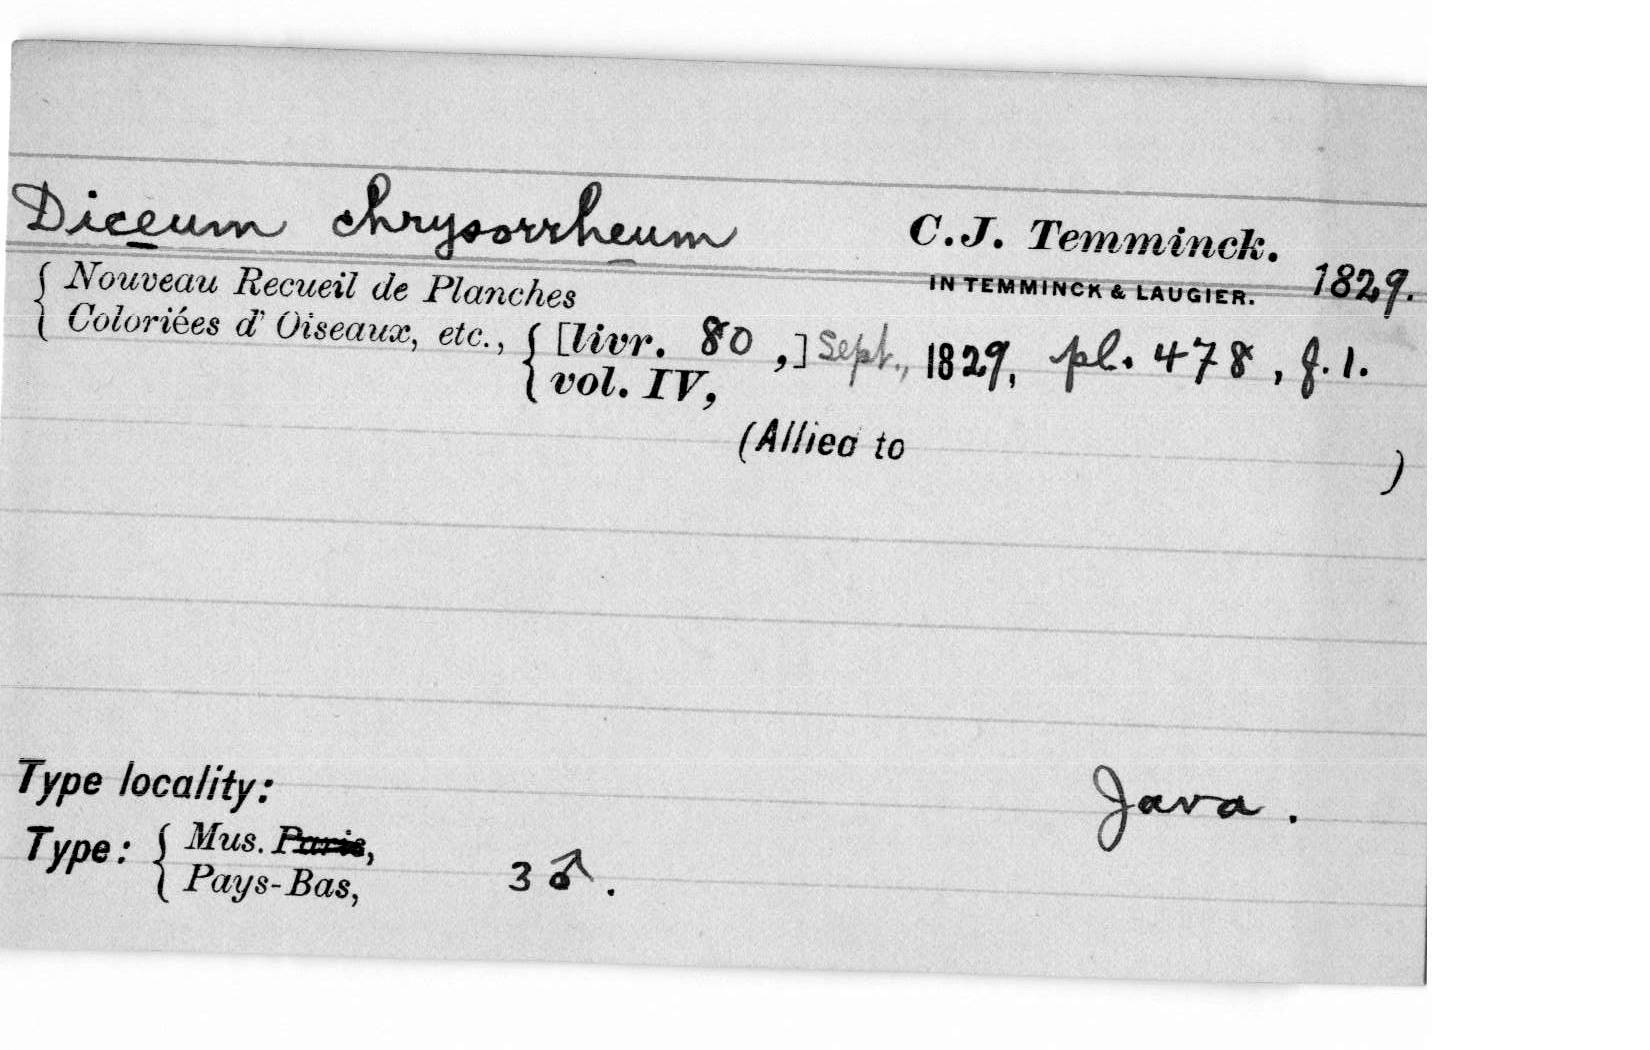 Diceum chrysorrheum C.J. Temminck.
IN TEMMINCK & LAUGIER. 1829.
{ Nouveau Recueil de Planches
Coloriées d' Oiseaux, etc., { [livr. 80 ,] Sept., 1829, pl. 478, f. 1.
vol. IV,
(Allied to )
Type locality: Java.
Type: { Mus. Paris,
Pays-Bas, 3 ♂.